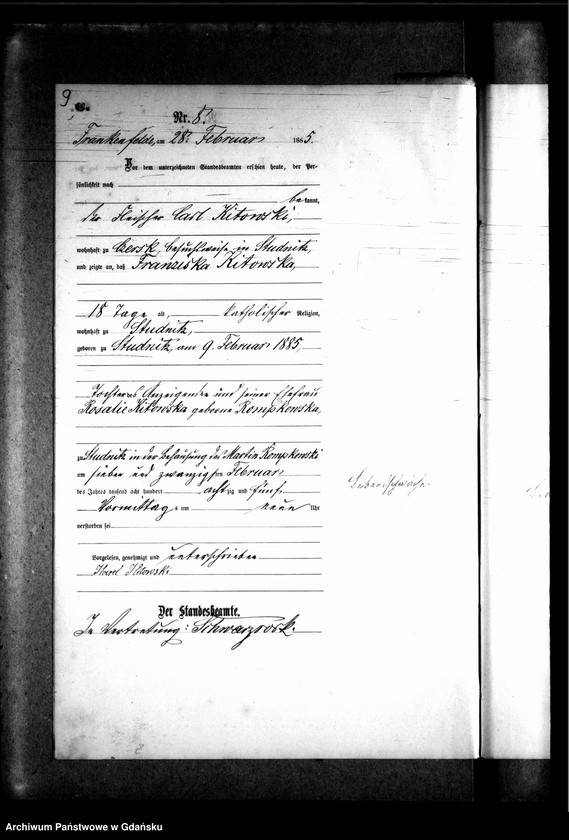 9
C.
Nr. 8.
Frankenfelde, am 28. Februar 1885.
Vor dem unterzeichneten Standesbeamten erschien heute, der Per-
sönlichkeit nach
bekannt,
der Fleischer Carl Kitowski,
wohnhaft zu Czersk, besuchsweise in Studnitz,
und zeigte an, daß Franziska Kitowska,
18 Tage alt, katholischer Religion,
wohnhaft zu Studnitz,
geboren zu Studnitz, am 9. Februar 1885,
Tochter des Anzeigenden und seiner Ehefrau
Rosalie Kitowska geborne Rompkowska,
zu Studnitz in der Behausung des Martin Rompkowski
am sieben und zwanzigsten Februar
des Jahres tausend acht hundert achtzig und fünf
Vormittags um neun Uhr
verstorben sei
Vorgelesen, genehmigt und unterschrieben
Karol Kitowski
Der Standesbeamte.
In Vertretung: Schwarzrock.
Lebensschwäche.
Archiwum Państwowe w Gdańsku